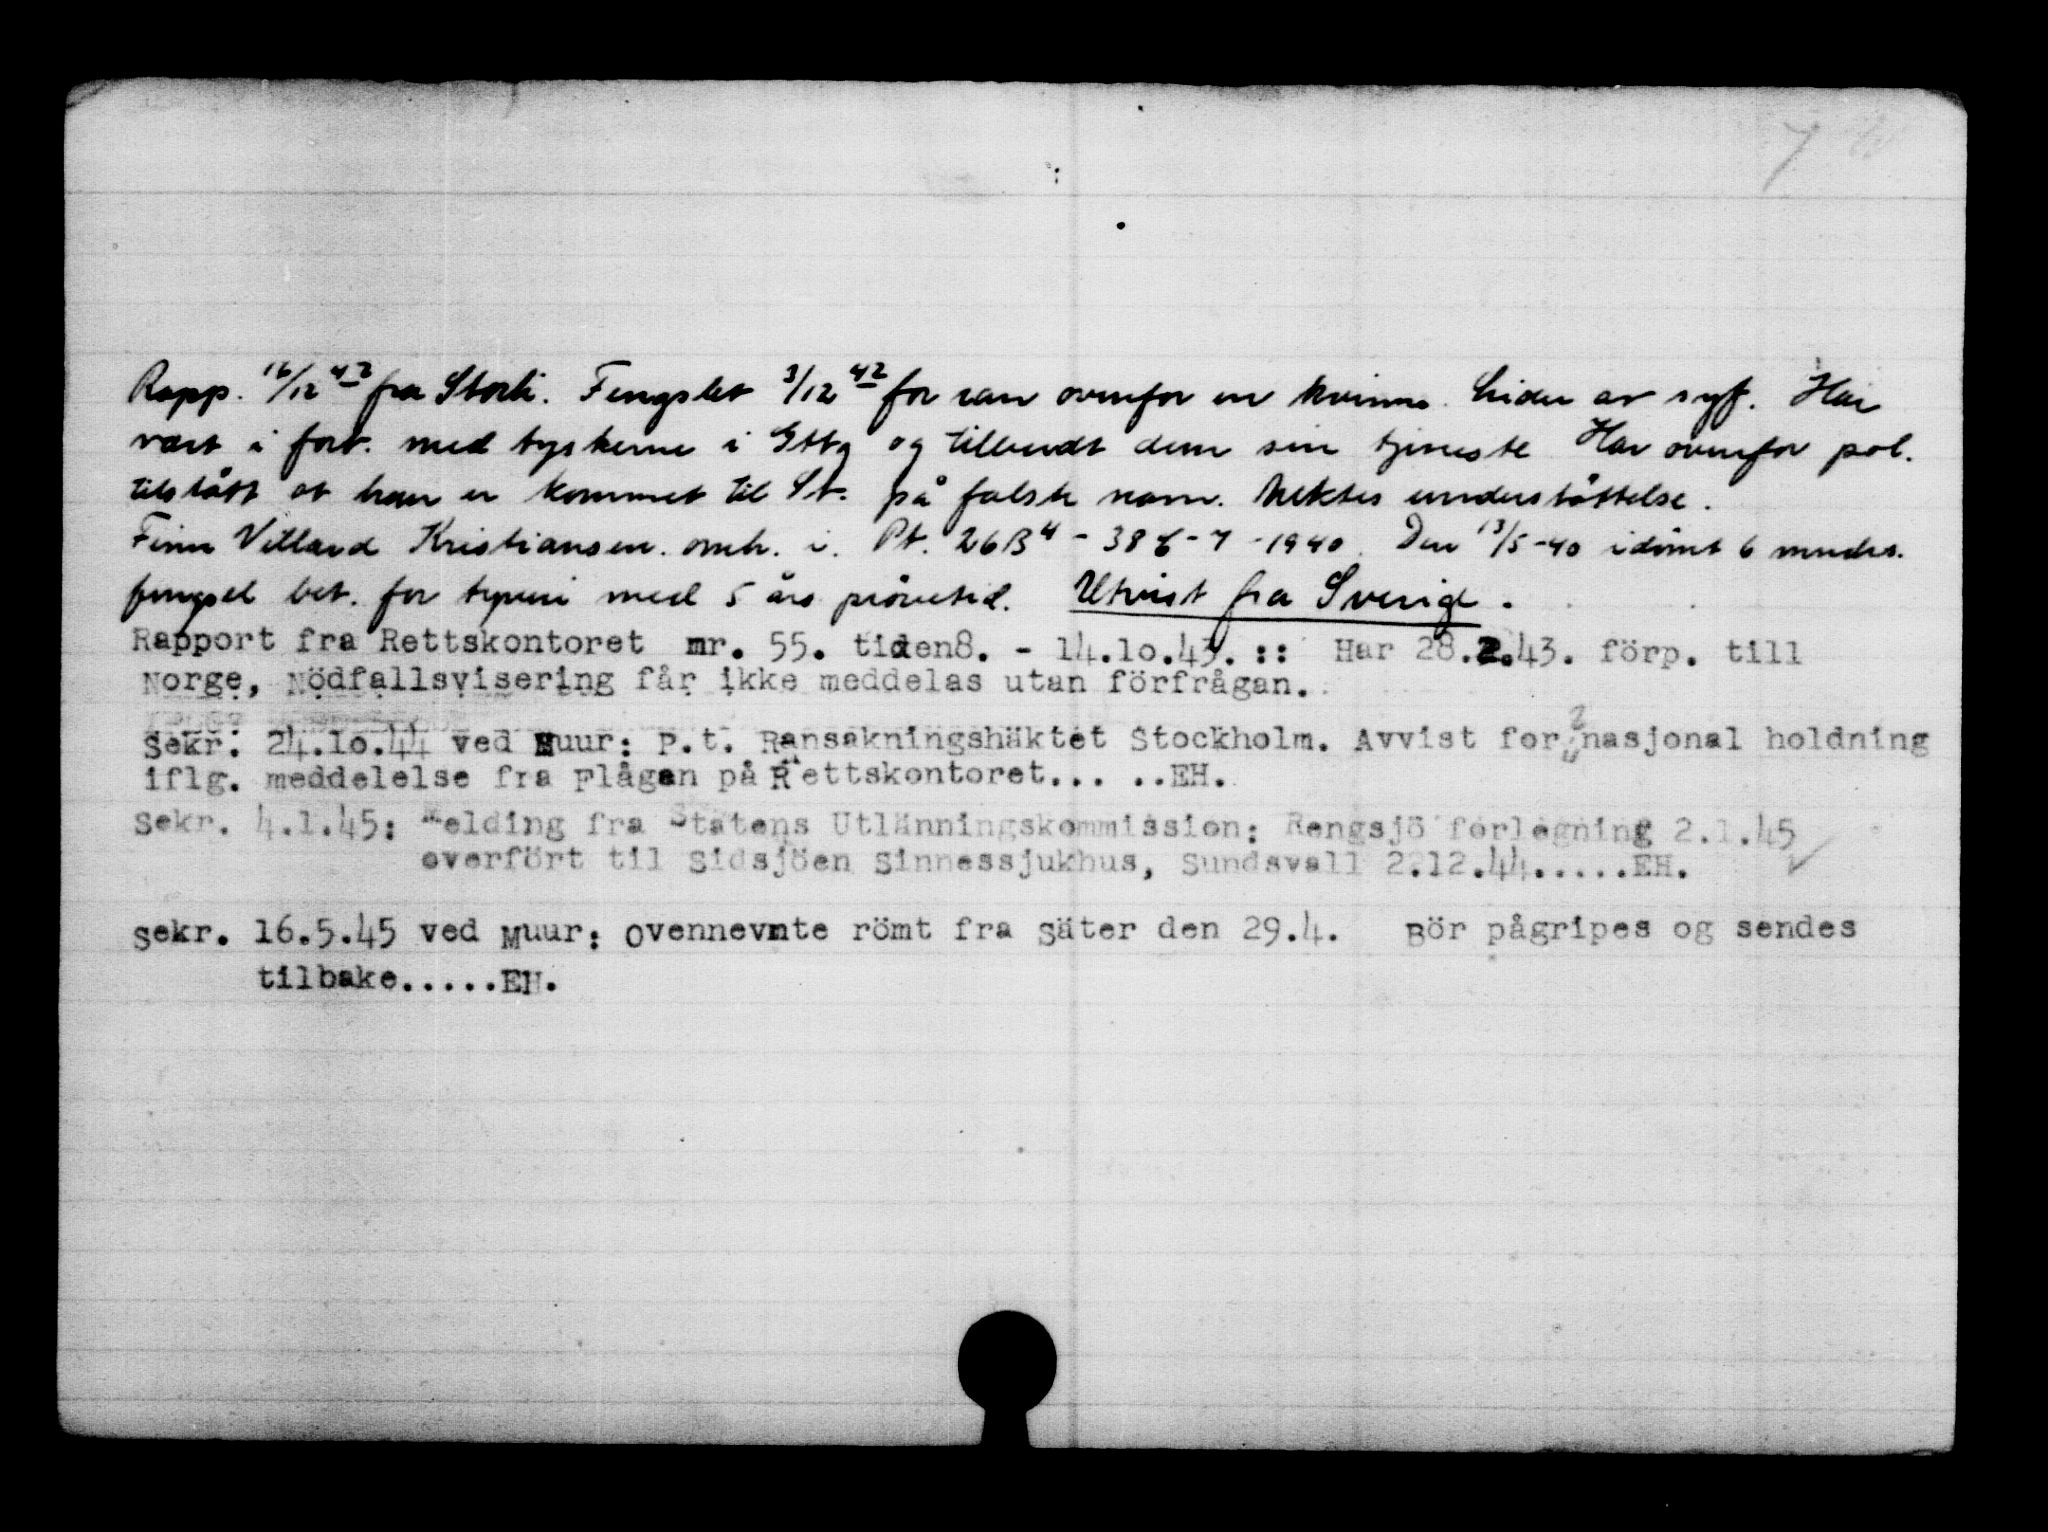 7
Rapp. 16/12 42 fra Storli. Fengslet 3/12 42 for ran ovenfor en kvinne. Lider av syf. Har
vært i forb. med tyskerne i Gttg og tilbudt dem sin tjeneste Har ovenfor pol.
tilstått at han er kommet til St. på falsk navn. Nektes understöttelse.
Finn Villard Kristiansen. omh. i. Pt. 26B4 - 386-7-1940. Den 13/5-40 idömt 6 mndrs.
fengsel bet. for tyveri med 5 års prövetid. Utvist fra Sverige.
Rapport fra Rettskontoret nr. 55. tiden8. - 14.10.43. :: Har 28.2.43. förp. till
Norge, Nödfallsvisering får ikke meddelas utan förfrågan.
Sekr. 24.10.44 ved Muur: P.t. Ransakningshäktet Stockholm. Avvist for ? nasjonal holdning
iflg. meddelelse fra Flågan på Rettskontoret... ..EH.
Sekr. 4.1.45: Melding fra Statens Utlänningskommission: Rengsjö forlegning 2.1.45
overfört til Sidsjöen Sinnessjukhus, Sundsvall 2.12.44.....EH.
Sekr. 16.5.45 ved Muur: Ovennevnte römt fra Säter den 29.4. Bör pågripes og sendes
tilbake.....EH.